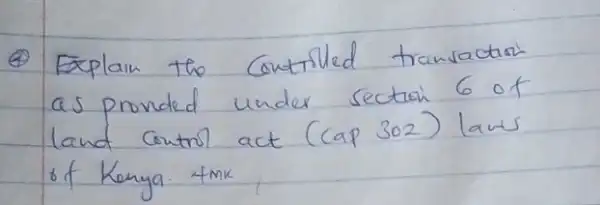 ④ Explain the Controlled transaction
as provided under section 6 of
land control act (cap 302) laws
of Kenya. 4mk